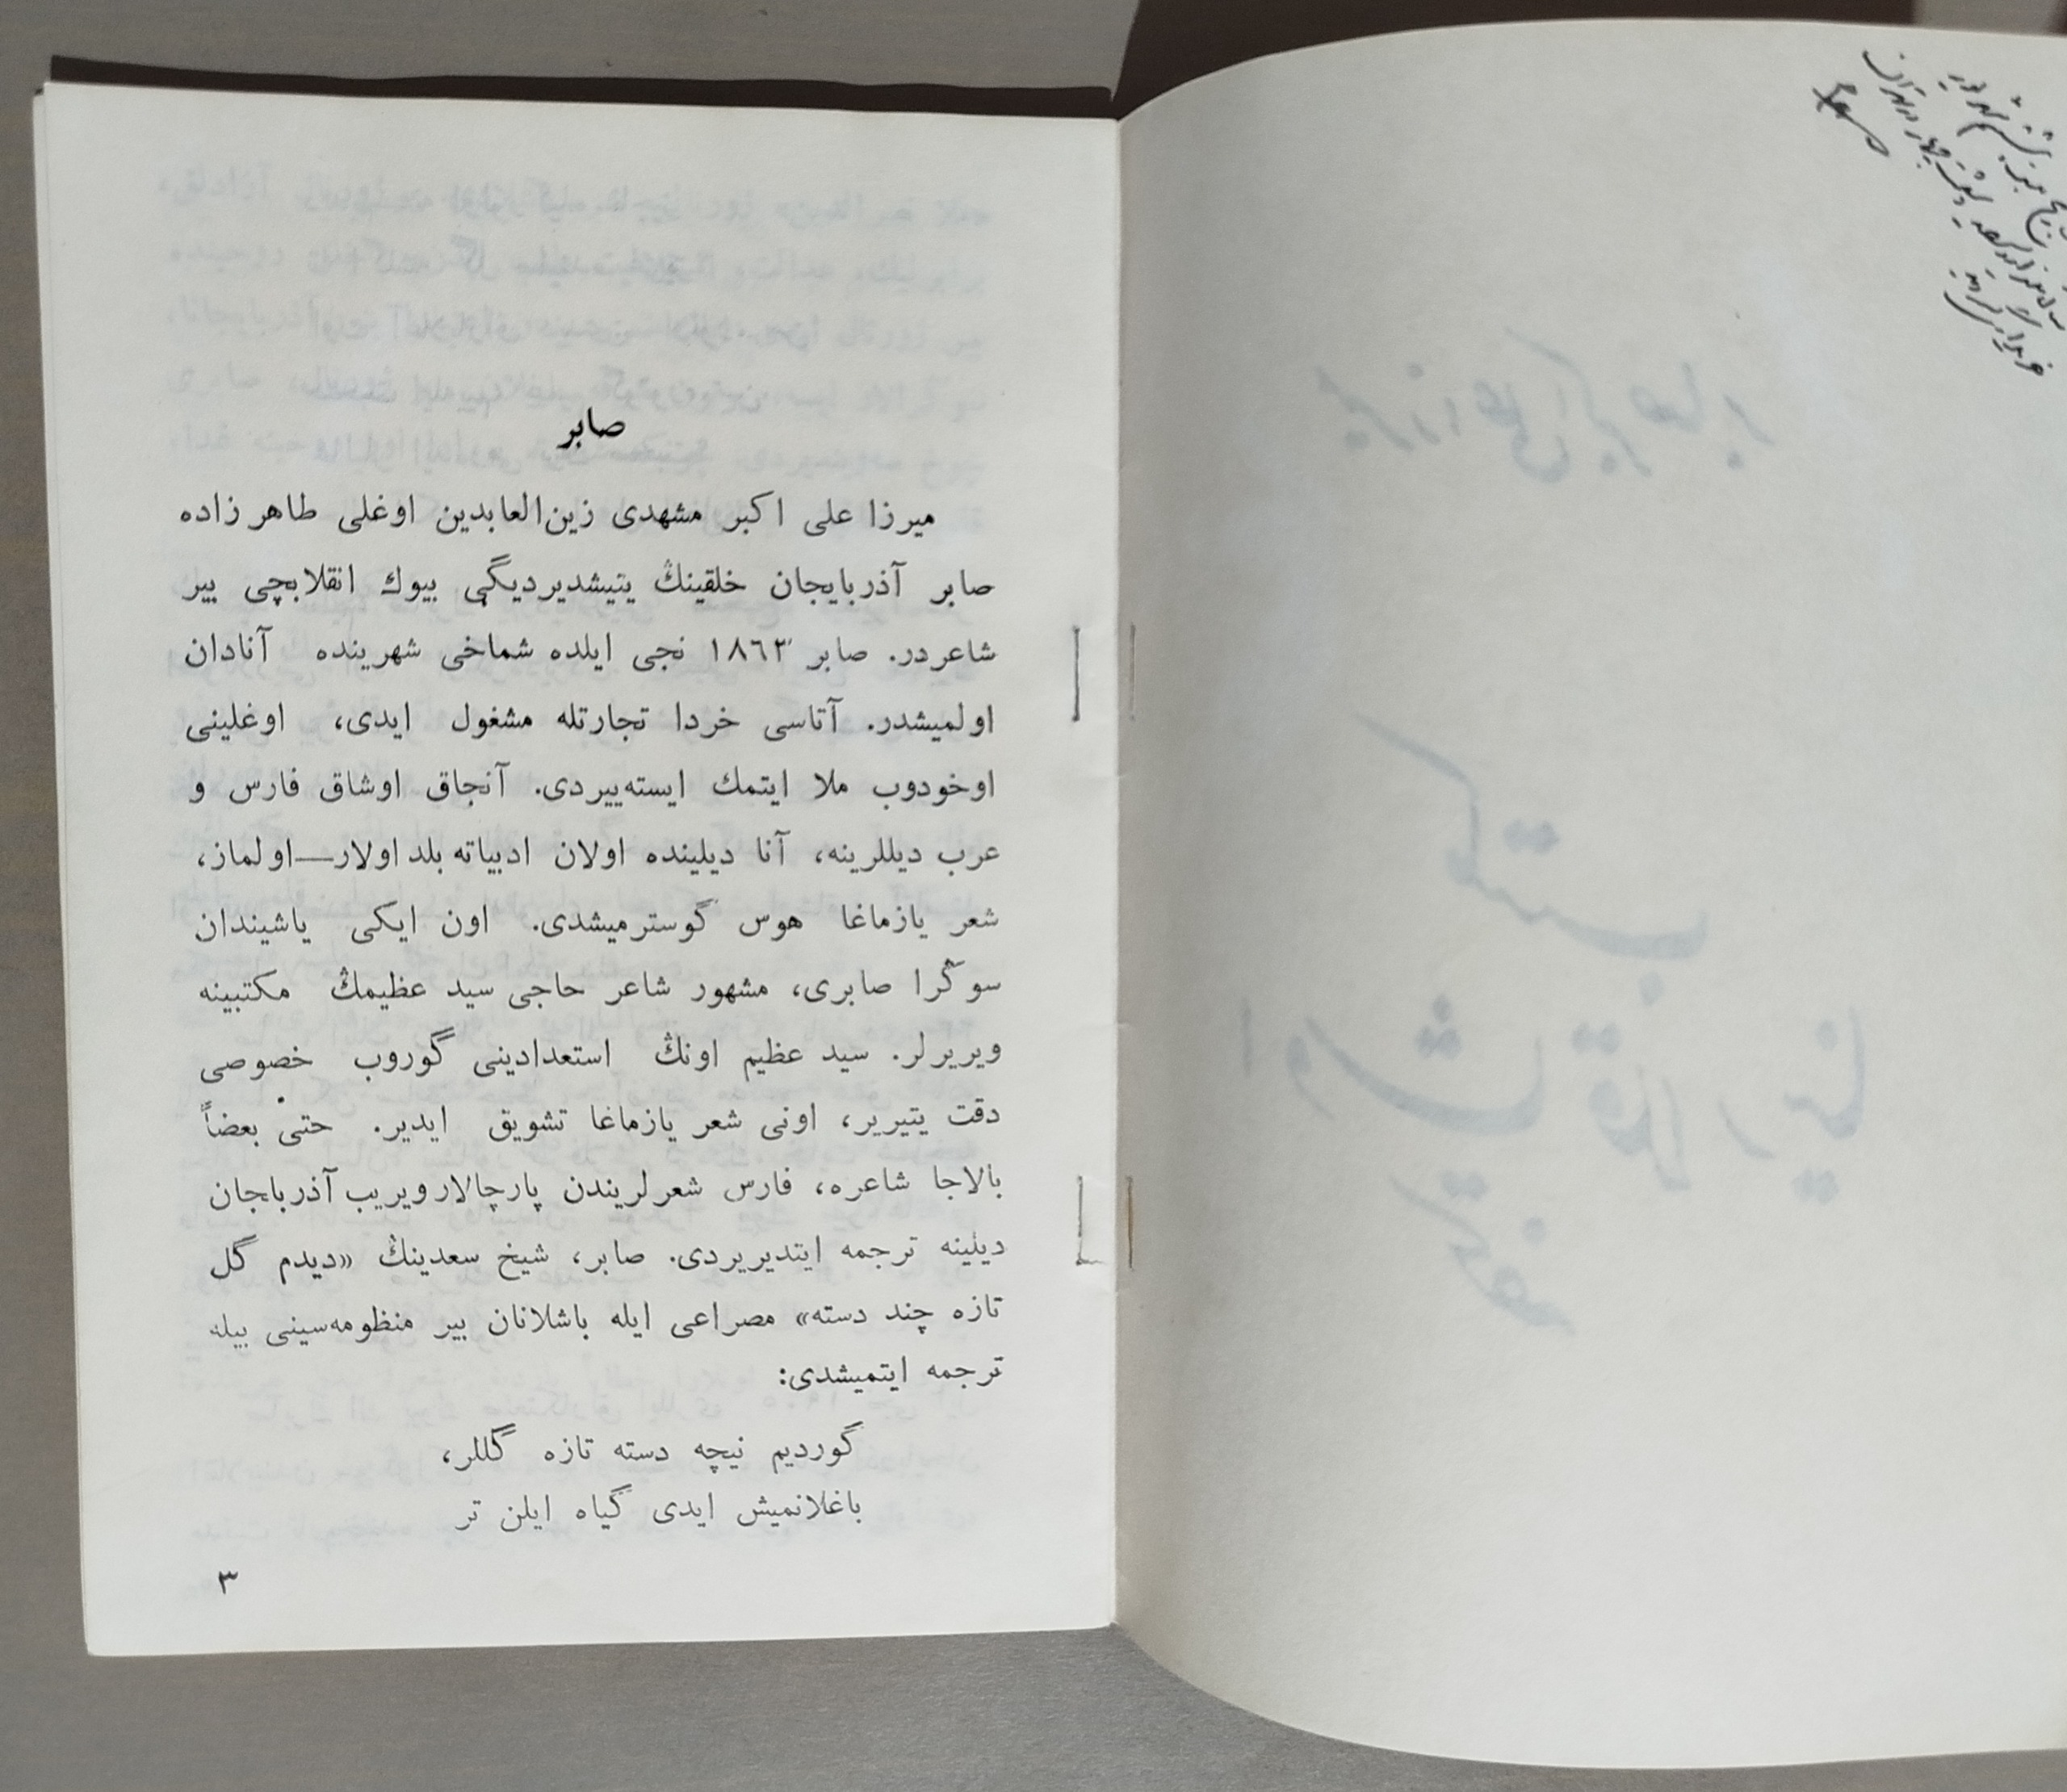 صابر
ميرزا على اكبر مشهدى زين‌العابدين اوغلى طاهرزاده
صابر آذربايجان خلقينڭ يتيشديرديگى بيوك انقلابچى بير
شاعردر. صابر ١٨٦٢ نجى ايلده شماخى شهرينده آنادان
اولميشدر. آتاسى خردا تجارتله مشغول ايدى، اوغلينى
اوخودوب ملا ايتمك ايسته‌ييردى. آنجاق اوشاق فارس و
عرب ديللرينه، آنا ديلينده اولان ادبياته بلد اولار—اولماز،
شعر يازماغا هوس گوسترميشدى. اون ايكى ياشيندان
سوڭرا صابرى، مشهور شاعر حاجى سيد عظيمڭ مكتبينه
ويريرلر. سيد عظيم اونڭ استعدادينى گوروب خصوصى
دقت يتيرير، اونى شعر يازماغا تشويق ايدير. حتى بعضاً
بالاجا شاعره، فارس شعرلريندن پارچالار ويريب آذربايجان
ديلينه ترجمه ايتديريردى. صابر، شيخ سعدينڭ «ديدم گل
تازه چند دسته» مصراعى ايله باشلانان بير منظومه‌سينى بيله
ترجمه ايتميشدى:
گورديم نيچه دسته تازه گللر،
باغلانميش ايدى گياه ايلن تر
٣